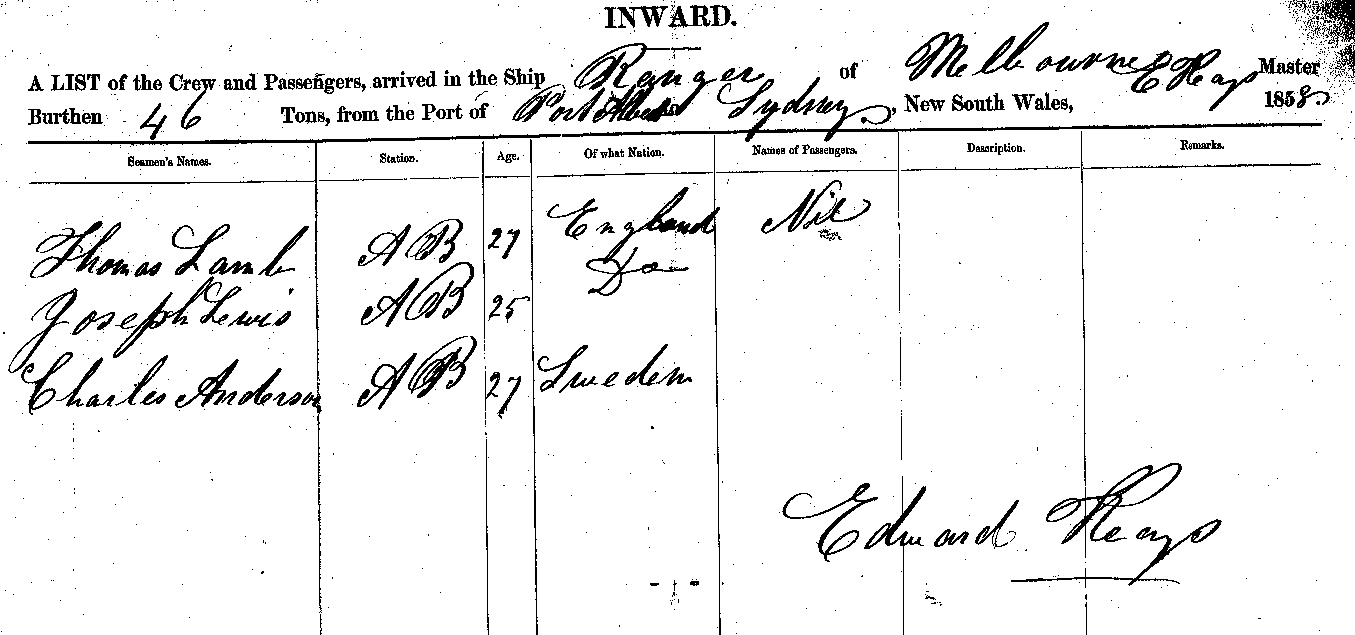 INWARD.
A LIST of the Crew and Passengers, arrived in the Ship Ranger of Melbourne E Heays Master
Burthen 46 Tons, from the Port of Port Albert Sydney, New South Wales, 1858
Seamen's Names. Station. Age. Of what Nation. Names of Passengers. Description. Remarks.
Thomas Lamb A B 27 England Nil
Joseph Lewis A B 25 Do
Charles Anderson A B 27 Sweden
Edward Heays